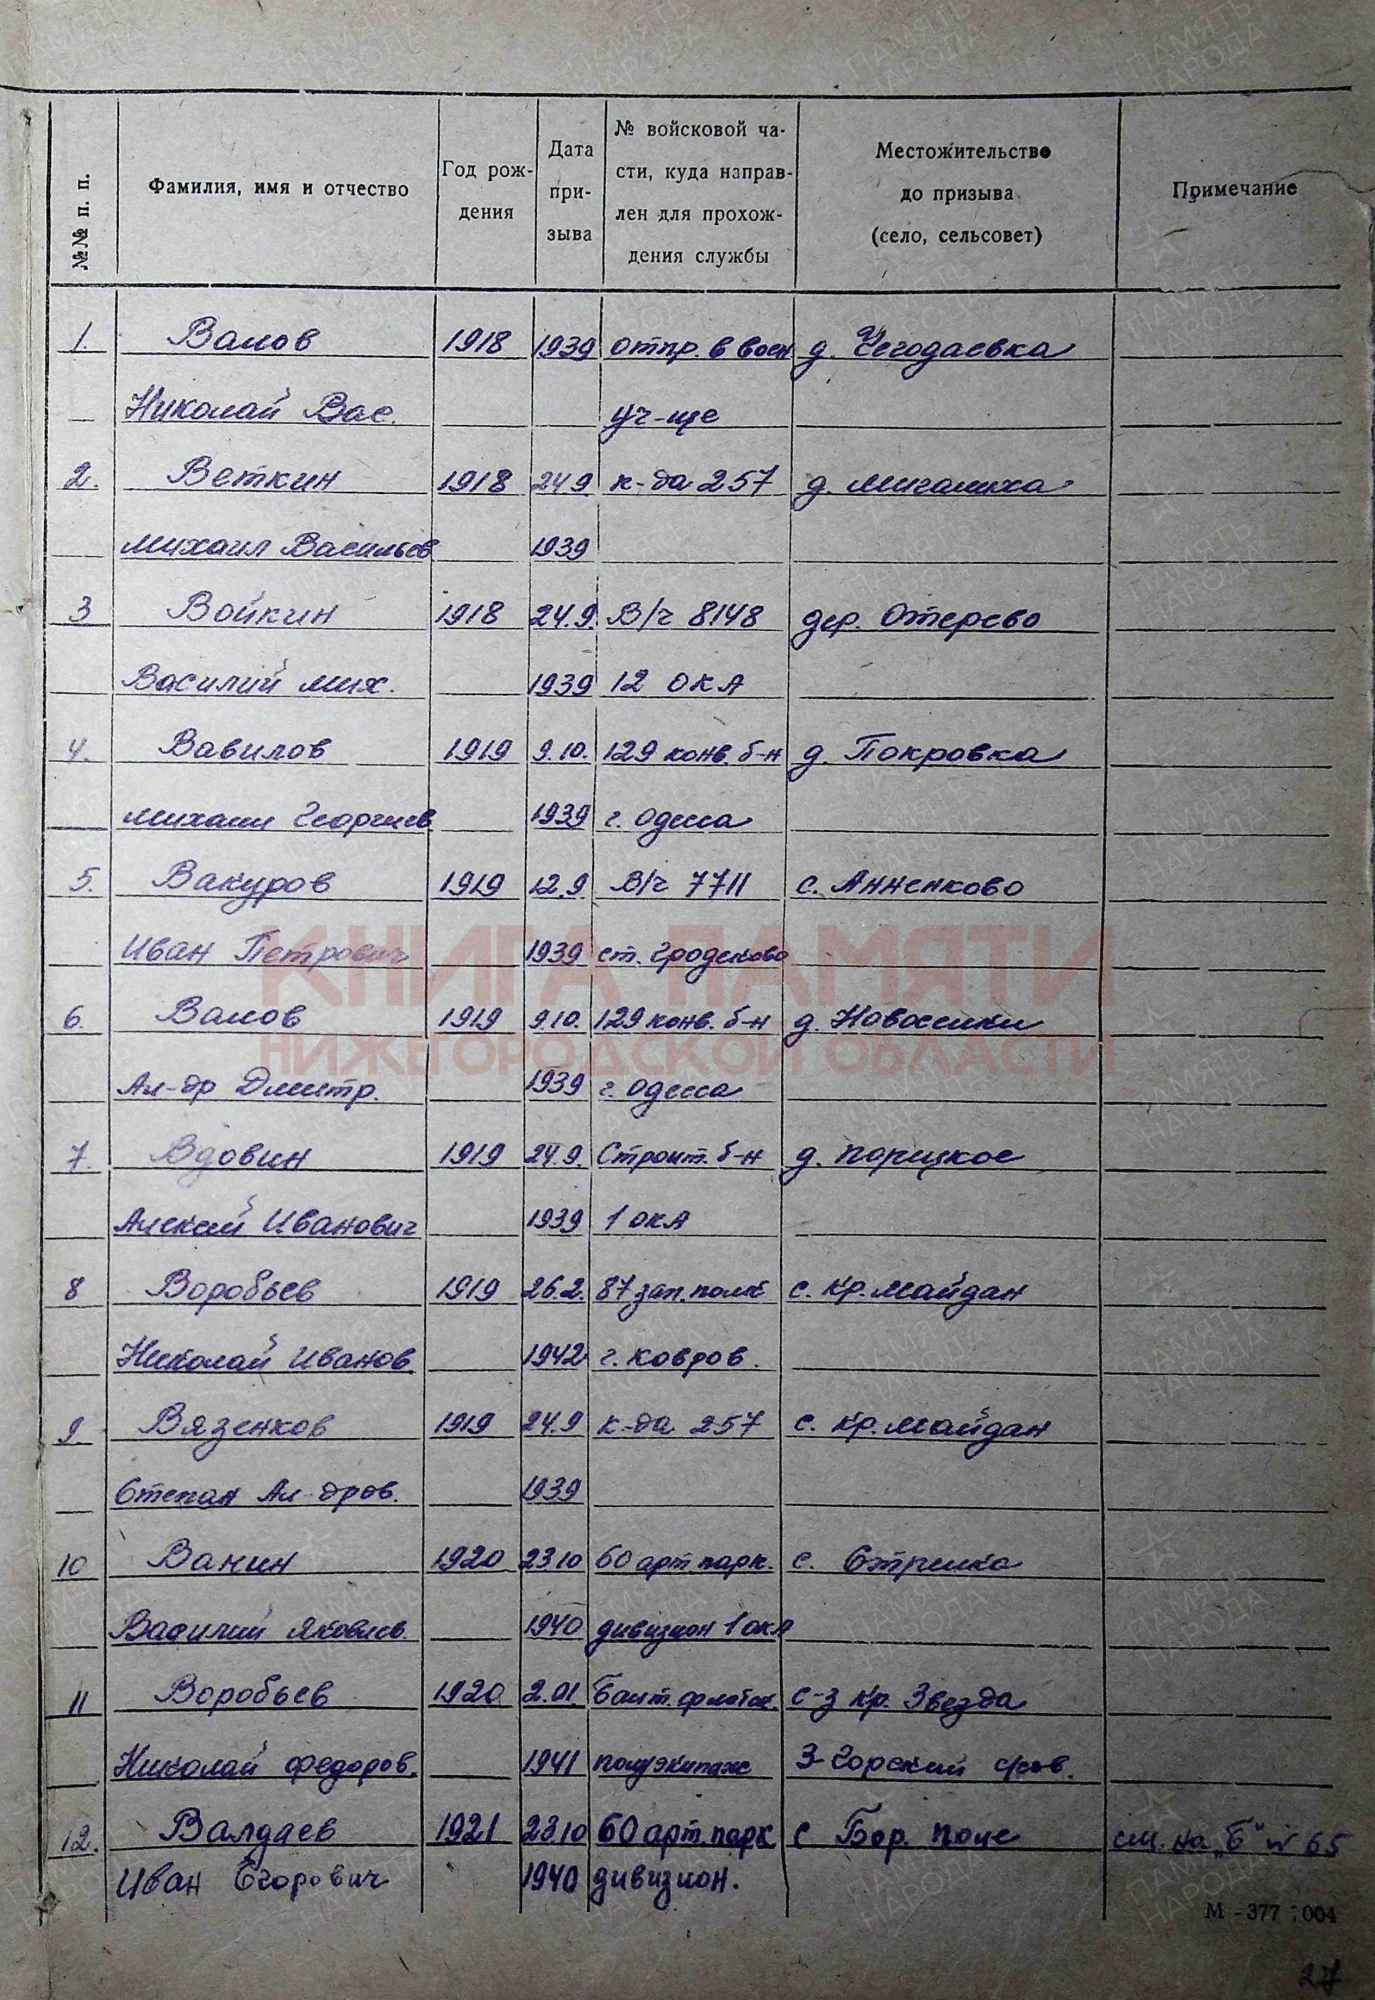 №№ п. п.
Фамилия, имя и отчество
Год рож-
дения
Дата
при-
зыва
№ войсковой ча-
сти, куда направ-
лен для прохож-
дения службы
Местожительство
до призыва
(село, сельсовет)
Примечание
1. Валов 1918 1939 отпр. в воен д. Чегодаевка
Николай Вас. уч-ще
2. Веткин 1918 24 9 к-да 257 д. Мигалиха
Михаил Васильев 1939
3 Войкин 1918 24.9. В/ч 8148 дер. Отерево
Василий Мих. 1939 12 ОКА
4. Вавилов 1919 9.10. 129 конв. б-н д. Покровка
Михаил Георгиев. 1939 г. Одесса
5. Вакуров 1919 12.9. В/ч 7711 с. Анненково
Иван Петрович 1939 ст. Гродеково
КНИГА ПАМЯТИ
6. Валов 1919 9.10. 129 конв. б-н д. Новоселки
НИЖЕГОРОДСКОЙ ОБЛАСТИ
Ал-др Дмитр. 1939 г. Одесса
7. Вдовин 1919 24.9. Строит. б-н д. Порецкое
Алексей Иванович 1939 1 ОКА
8 Воробьев 1919 26.2. 87 зап. полк с. Кр. Майдан
Николай Иванов. 1942 г. Ковров.
9 Вязенков 1919 24.9 к-да 257 с. Кр. Майдан
Степан Ал-дров. 1939
10 Ванин 1920 23 10 60 арт. парк. с. Стрелка
Василий Яковлев. 1940 дивизион 1 ОКА
11 Воробьев 1920 2.01. Балт. флотск. с-з Кр. Звезда
Николай Федоров. 1941 полуэкипаж З-Горский с/сов.
12. Валдаев 1921 23 10 60 арт. парк с Бор. поле см. на "Б" № 65
Иван Егорович 1940 дивизион.
М - 377 004
27